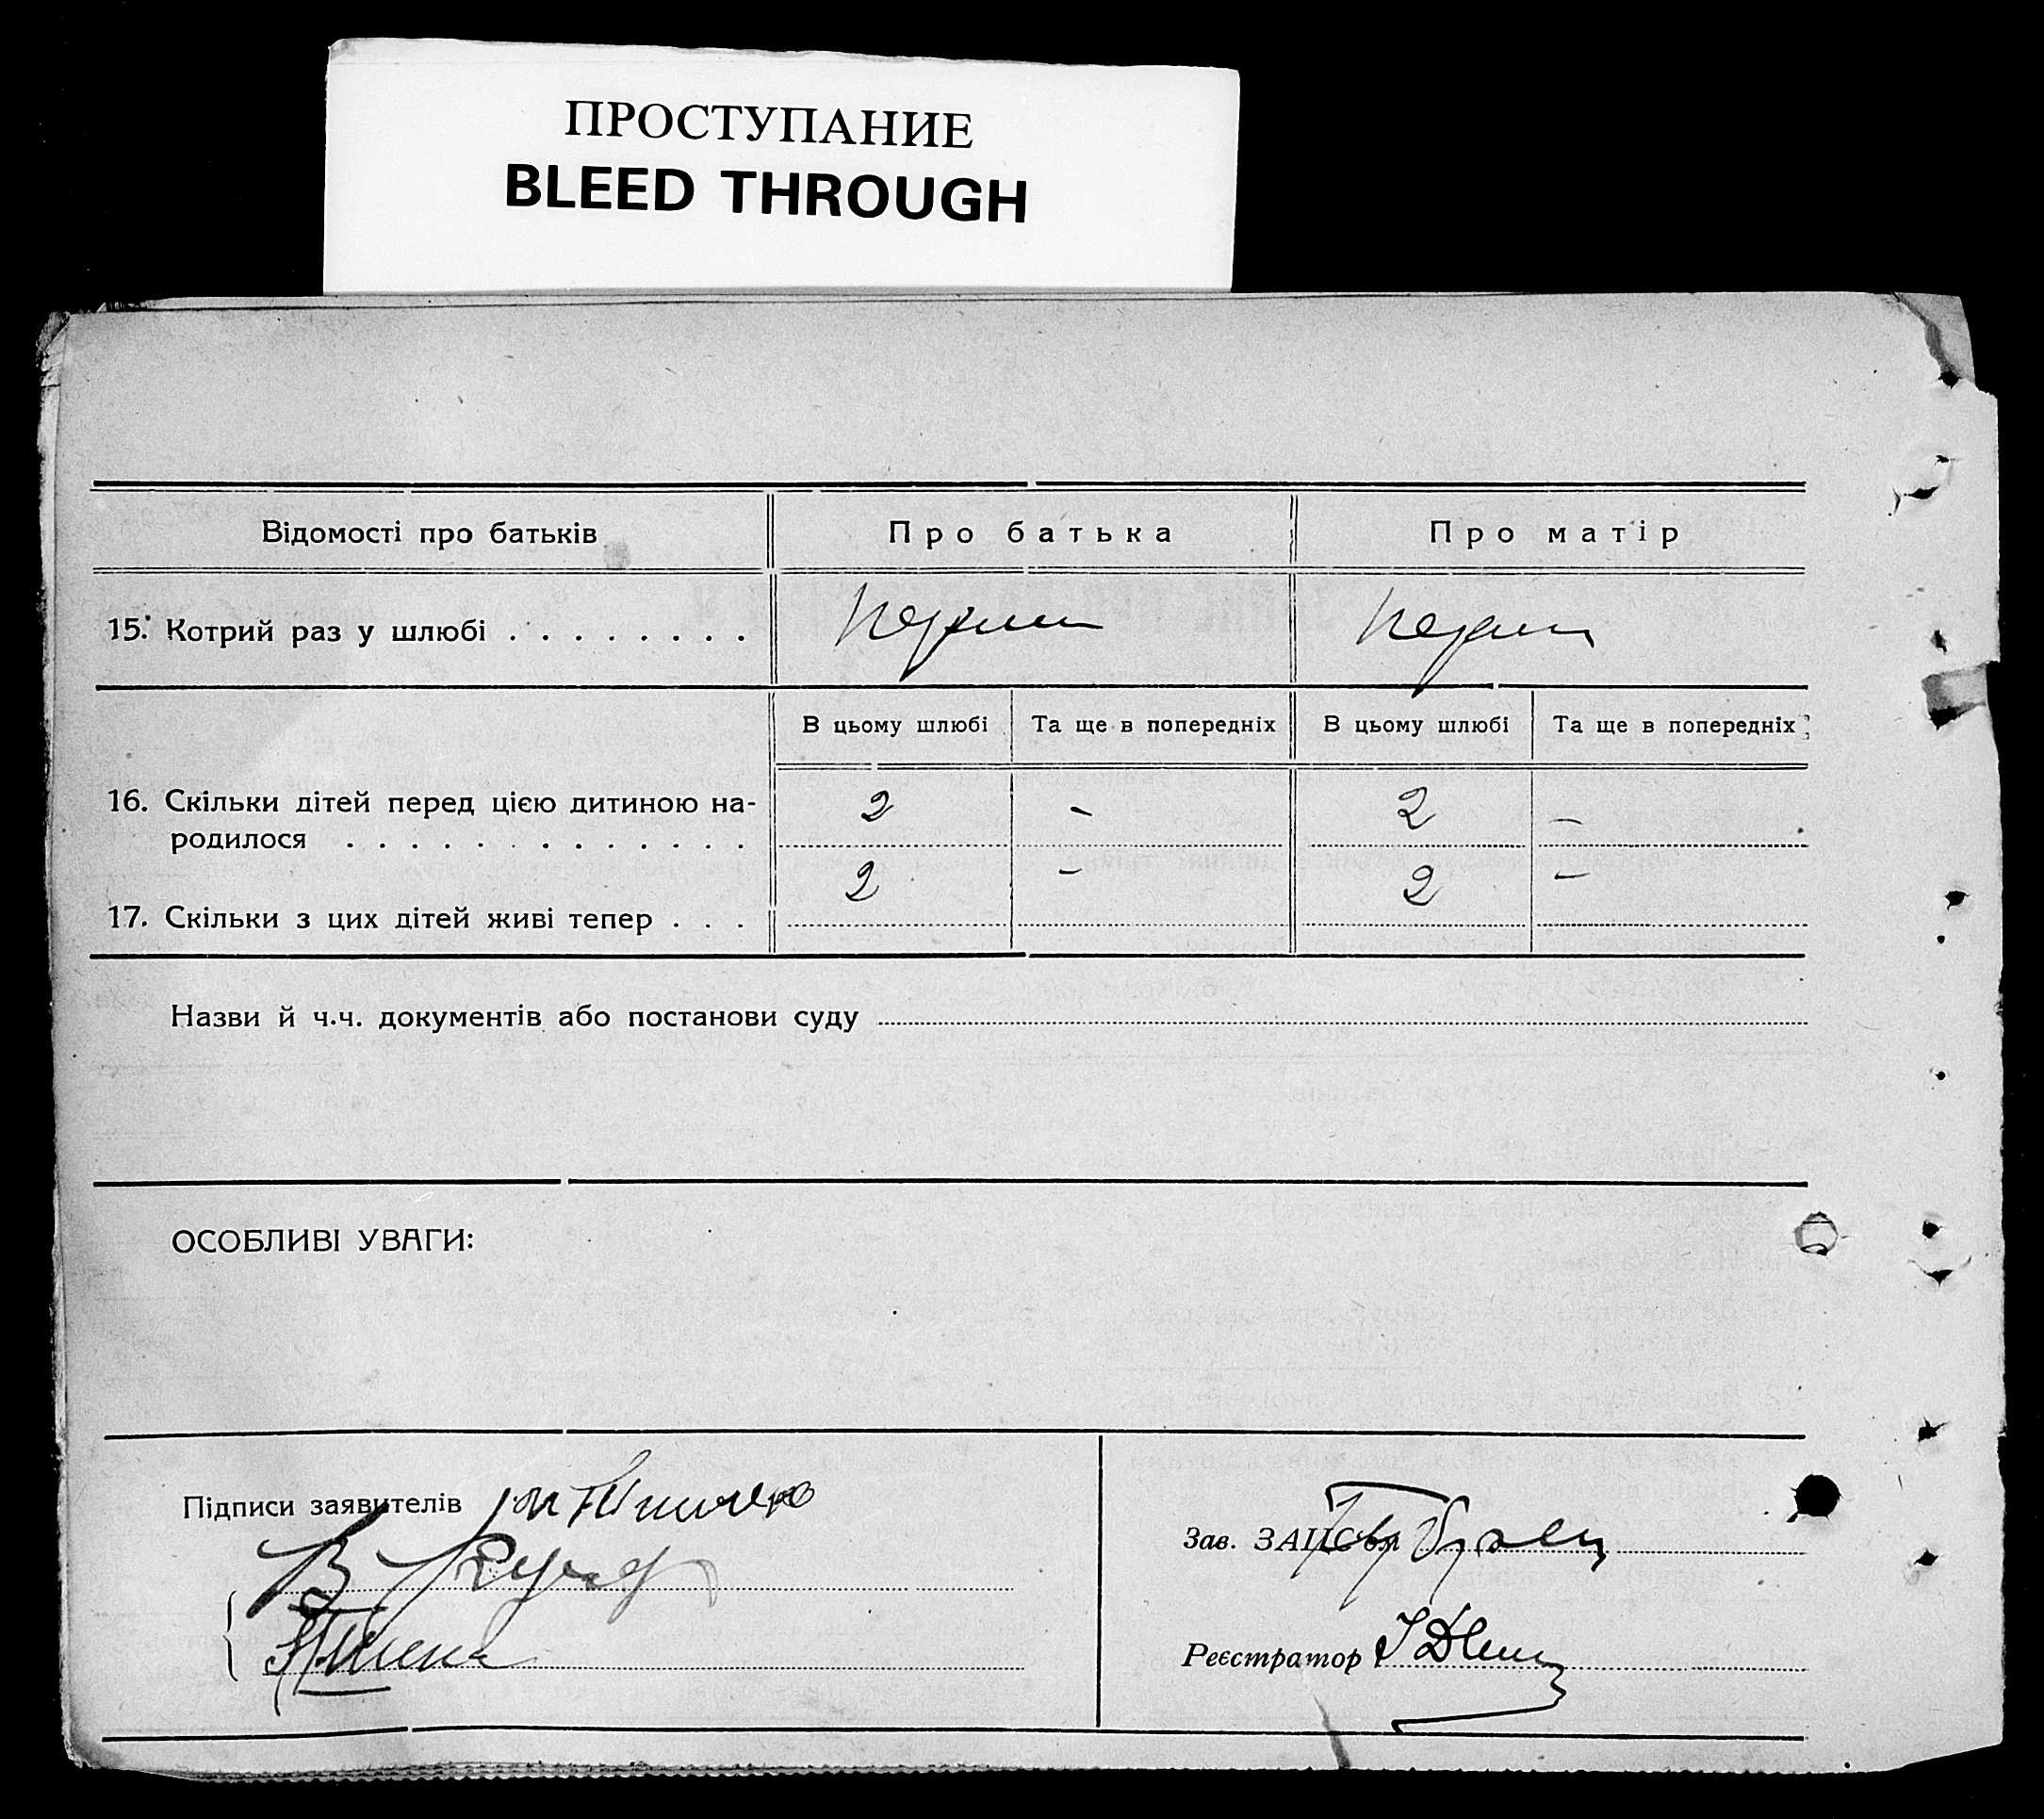 ПРОСТУПАНИЕ
BLEED THROUGH
Відомості про батьків Про батька Про матір
15. Котрий раз у шлюбі . . . . . . . .
В цьому шлюбі Та ще в попередніх В цьому шлюбі Та ще в попередніх
16. Скільки дітей перед цією дитиною на- 2 - 2 -
родилося . . . . . . . . . . . . .
2 - 2 -
17. Скільки з цих дітей живі тепер . . .
Назви й ч.ч. документів або постанови суду
ОСОБЛИВІ УВАГИ:
Підписи заявителів
Зав. ЗАЦС'ом
Реєстратор